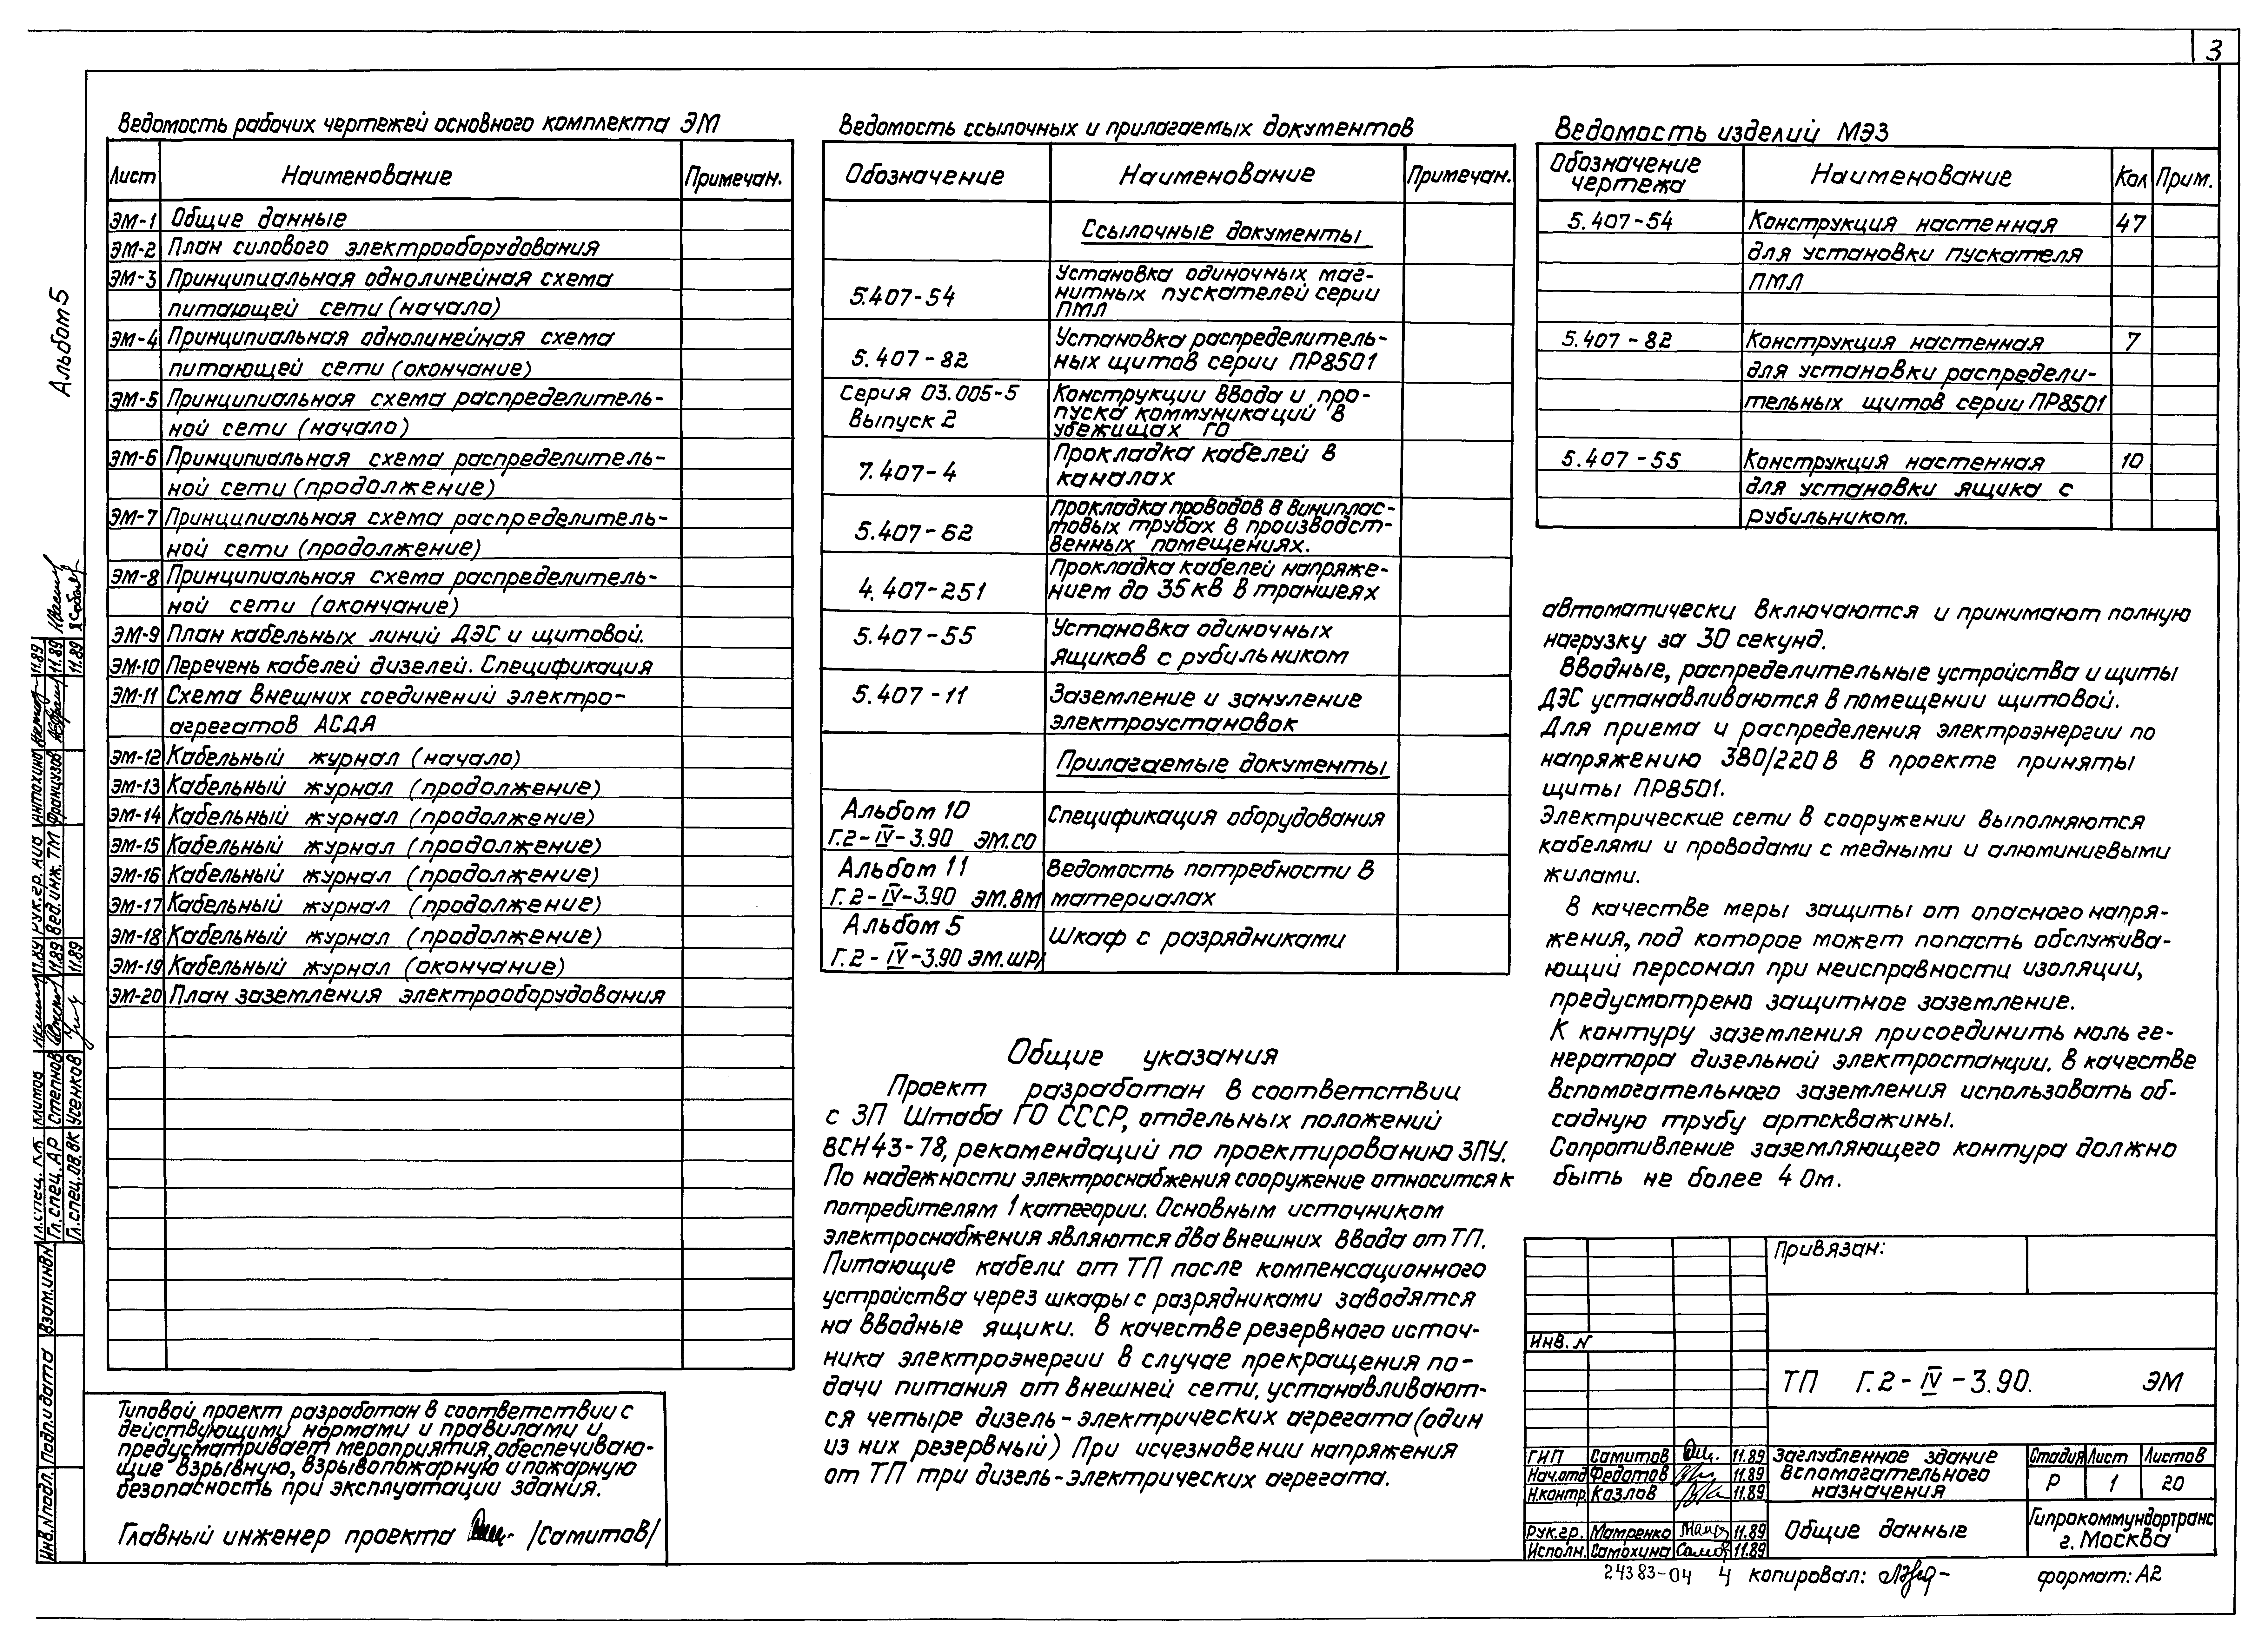 3
Альбом 5
Ведомость рабочих чертежей основного комплекта ЭМ
Лист Наименование Примечан.
ЭМ-1 Общие данные
ЭМ-2 План силового электрооборудования
ЭМ-3 Принципиальная однолинейная схема
питающей сети (начало)
ЭМ-4 Принципиальная однолинейная схема
питающей сети (окончание)
ЭМ-5 Принципиальная схема распределитель-
ной сети (начало)
ЭМ-6 Принципиальная схема распределитель-
ной сети (продолжение)
ЭМ-7 Принципиальная схема распределитель-
ной сети (продолжение)
ЭМ-8 Принципиальная схема распределитель-
ной сети (окончание)
ЭМ-9 План кабельных линий ДЭС и щитовой.
ЭМ-10 Перечень кабелей дизелей. Спецификация
ЭМ-11 Схема внешних соединений электро-
агрегатов АСДА
ЭМ-12 Кабельный журнал (начало)
ЭМ-13 Кабельный журнал (продолжение)
ЭМ-14 Кабельный журнал (продолжение)
ЭМ-15 Кабельный журнал (продолжение)
ЭМ-16 Кабельный журнал (продолжение)
ЭМ-17 Кабельный журнал (продолжение)
ЭМ-18 Кабельный журнал (продолжение)
ЭМ-19 Кабельный журнал (окончание)
ЭМ-20 План заземления электрооборудования
Типовой проект разработан в соответствии с
действующими нормами и правилами и
предусматривает мероприятия, обеспечиваю-
щие взрывную, взрывопожарную и пожарную
безопасность при эксплуатации здания.
Главный инженер проекта /Самитов/
Ведомость ссылочных и прилагаемых документов
Обозначение Наименование Примечан.
Ссылочные документы
5.407-54 Установка одиночных маг-
нитных пускателей серии
ПМЛ
5.407-82 Установка распределитель-
ных щитов серии ПР8501
Серия 03.005-5 Конструкции ввода и про-
Выпуск 2 пуска коммуникаций в
убежищах ГО
7.407-4 Прокладка кабелей в
каналах
5.407-62 Прокладка проводов в виниплас-
товых трубах в производст-
венных помещениях.
4.407-251 Прокладка кабелей напряже-
нием до 35 кВ в траншеях
5.407-55 Установка одиночных
ящиков с рубильником
5.407-11 Заземление и зануление
электроустановок
Прилагаемые документы
Альбом 10 Спецификация оборудования
Г.2-IV-3.90 ЭМ.СО
Альбом 11 Ведомость потребности в
Г.2-IV-3.90 ЭМ.ВМ материалах
Альбом 5 Шкаф с разрядниками
Г.2-IV-3.90 ЭМ.ШР1
Общие указания
Проект разработан в соответствии
с ЗП Штаба ГО СССР, отдельных положений
ВСН 43-78, рекомендаций по проектированию ЗПУ.
По надежности электроснабжения сооружение относится к
потребителям 1 категории. Основным источником
электроснабжения являются два внешних ввода от ТП.
Питающие кабели от ТП после компенсационного
устройства через шкафы с разрядниками заводятся
на вводные ящики. В качестве резервного источ-
ника электроэнергии в случае прекращения по-
дачи питания от внешней сети, устанавливают-
ся четыре дизель-электрических агрегата (один
из них резервный) При исчезновении напряжения
от ТП три дизель-электрических агрегата.
Ведомость изделий МЭЗ
Обозначение чертежа Наименование Кол Прим.
5.407-54 Конструкция настенная 47
для установки пускателя
ПМЛ
5.407-82 Конструкция настенная 7
для установки распредели-
тельных щитов серии ПР8501
5.407-55 Конструкция настенная 10
для установки ящика с
рубильником.
автоматически включаются и принимают полную
нагрузку за 30 секунд.
Вводные, распределительные устройства и щиты
ДЭС устанавливаются в помещении щитовой.
Для приема и распределения электроэнергии по
напряжению 380/220 В в проекте приняты
щиты ПР8501.
Электрические сети в сооружении выполняются
кабелями и проводами с медными и алюминиевыми
жилами.
В качестве меры защиты от опасного напря-
жения, под которое может попасть обслужива-
ющий персонал при неисправности изоляции,
предусмотрено защитное заземление.
К контуру заземления присоединить ноль ге-
нератора дизельной электростанции. В качестве
вспомогательного заземления использовать об-
садную трубу артскважины.
Сопротивление заземляющего контура должно
быть не более 4 Ом.
Привязан:
Инв. N
ТП Г.2-IV-3.90. ЭМ
ГИП Самитов 11.89
Нач.отд Федотов 11.89
Н.контр. Козлов 11.89
Рук.гр. Матренко 11.89
Исполн. Самохина 11.89
Заглубленное здание
вспомогательного
назначения
Стадия Лист Листов
Р 1 20
Общие данные
Гипрокоммундортранс
г. Москва
24383-04 4 копировал: формат: А2
Гл.спец. КЖ Климов 11.89 Рук.гр. АИВ Антохина 11.89
Гл.спец. АР Степнов 11.89 Вед.инж. ТМ Французов 11.89
Гл.спец. ОВ.ВК Усенков 11.89 11.89
Инв.N подл. Подп.и дата Взам.инв.N